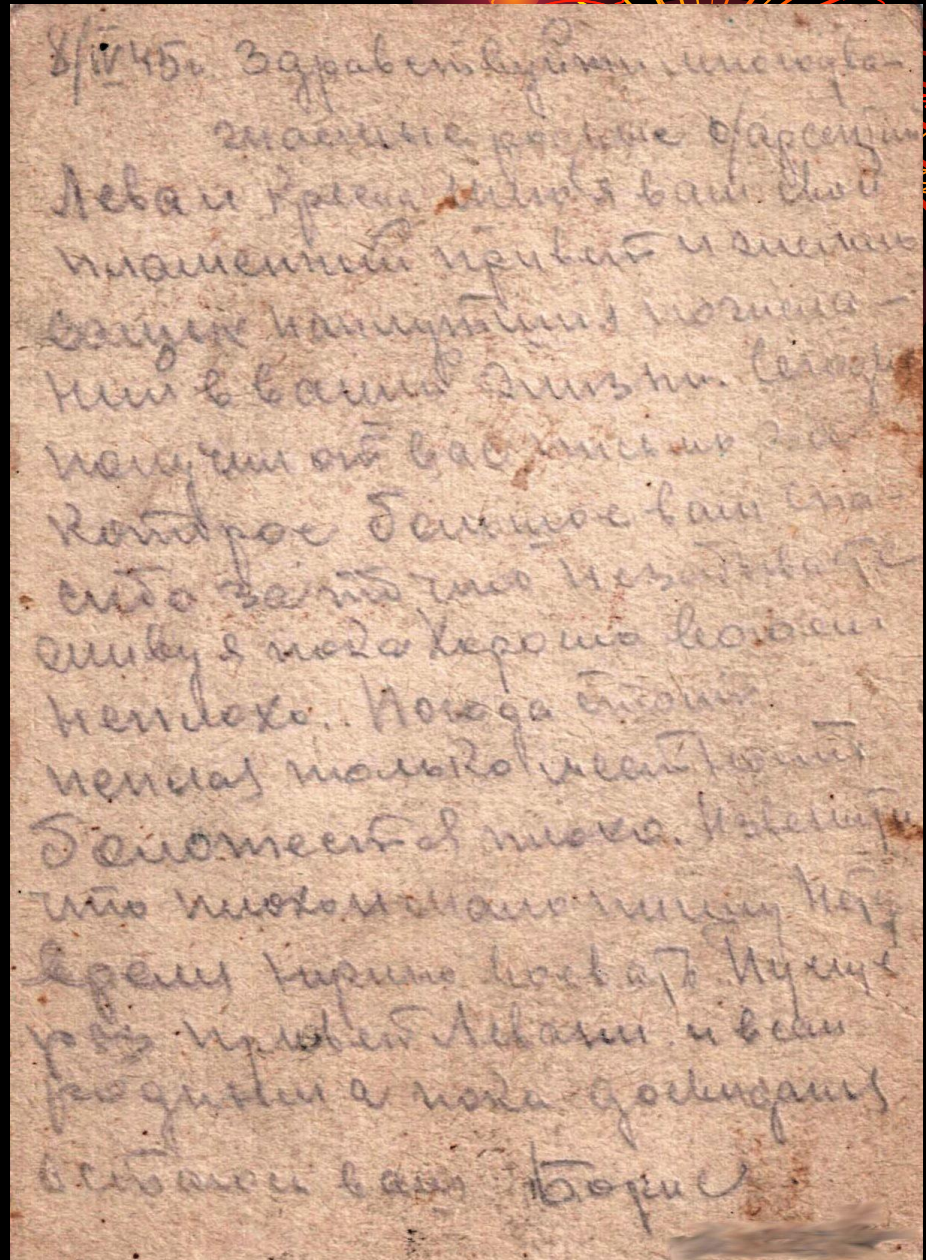 8/IV 45г. Здравствуйти многоува-
жаемые родные
Лева и шлю я вам свой
пламенный привет и желаю
наилутшия пожела-
ний в ваший жизни. Сегодн
получил от вас письмо за
которое большое вам спа-
сибо за то что незабываете
живу я пока хорошо воюем
неплохо. Погода стоит
теплая только местность
болотестая плохо. Извените
что плохо и мало пишу нету
время нужно воевать. Ну еще
раз привет и всем
родным а пока досвидания
остаюсь ваш Борис